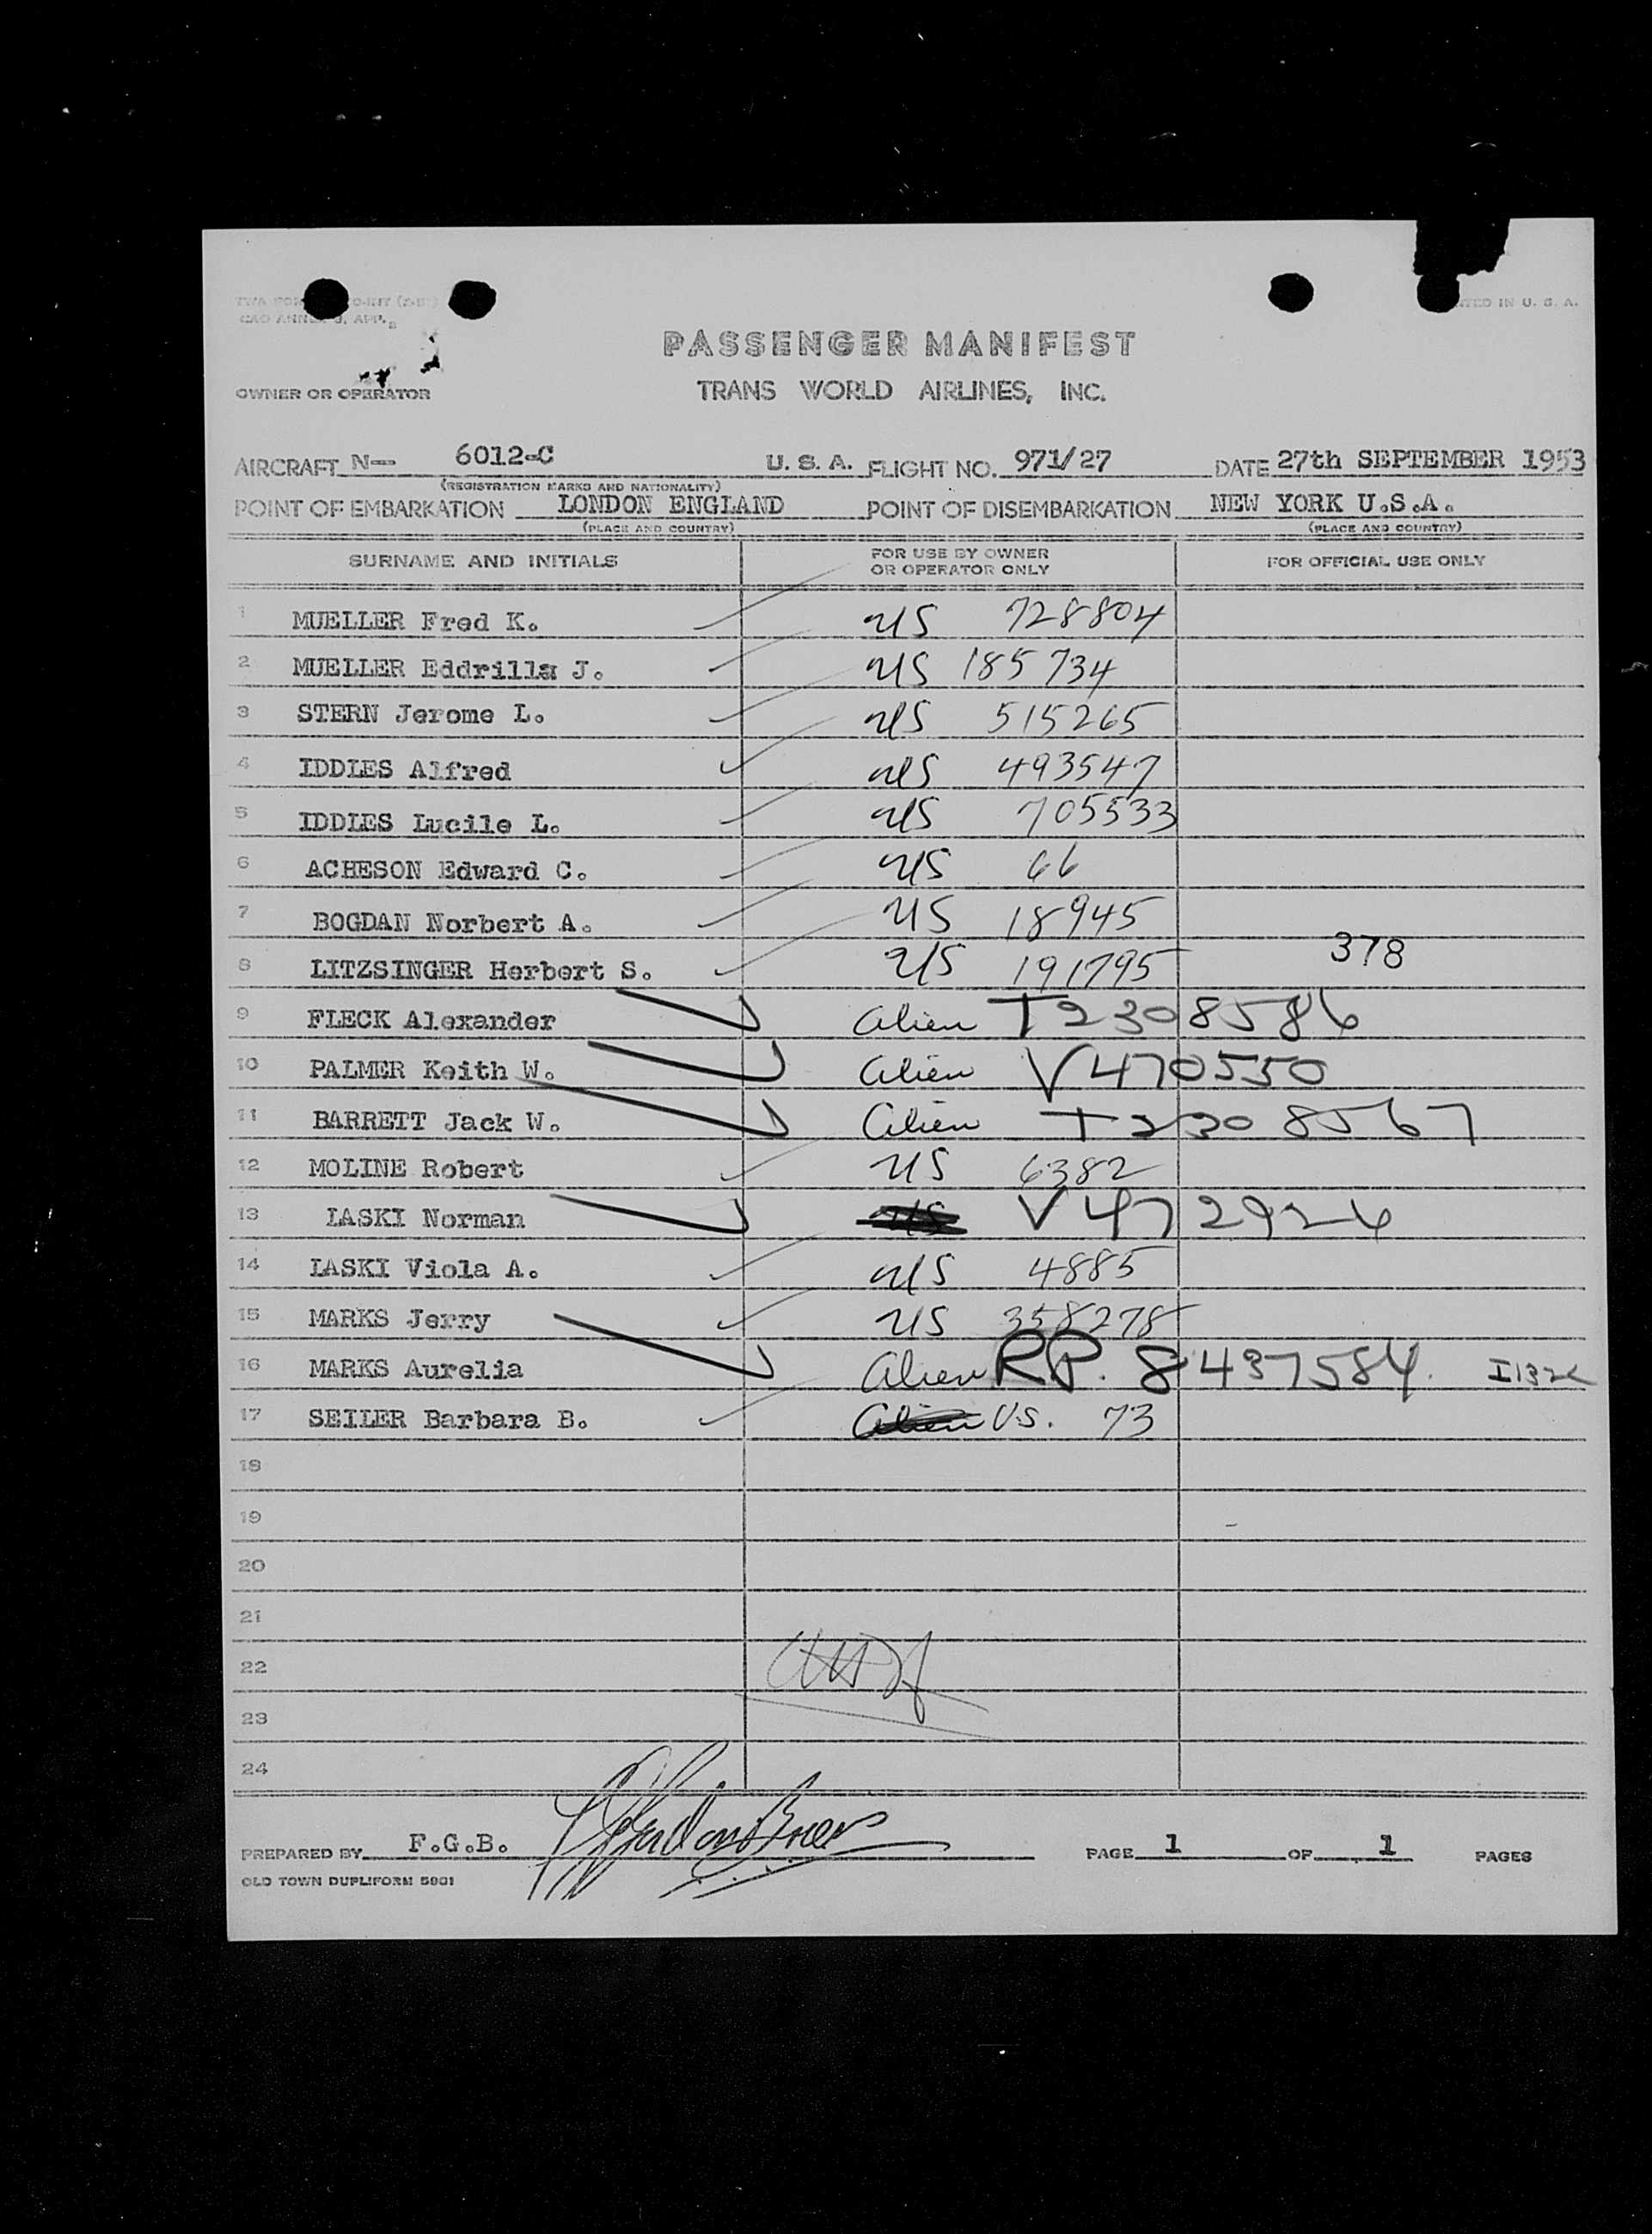 PASSENGER MANIFEST
OWNER OR OPERATOR TRANS WORLD AIRLINES, INC.
AIRCRAFT N-- 6012-C U. S. A. FLIGHT NO. 971/27 DATE 27th SEPTEMBER 1953
(REGISTRATION MARKS AND NATIONALITY)
POINT OF EMBARKATION LONDON ENGLAND POINT OF DISEMBARKATION NEW YORK U.S.A.
(PLACE AND COUNTRY) (PLACE AND COUNTRY)
SURNAME AND INITIALS FOR USE BY OWNER OR OPERATOR ONLY FOR OFFICIAL USE ONLY
1 MUELLER Fred K. US 728804
2 MUELLER Eddrilla J. US 185734
3 STERN Jerome L. US 515265
4 IDDLES Alfred US 493547
5 IDDLES Lucile L. US 705533
6 ACHESON Edward C. US 66
7 BOGDAN Norbert A. US 18945
8 LITZSINGER Herbert S. US 191795 378
9 FLECK Alexander Alien T2308586
10 PALMER Keith W. Alien V470550
11 BARRETT Jack W. Alien T2308567
12 MOLINE Robert US 6382
13 LASKI Norman US V472926
14 LASKI Viola A. US 4885
15 MARKS Jerry US 358278
16 MARKS Aurelia Alien RP. 8437584.
17 SEILER Barbara B. Alien U.S. 73
18
19
20
21
22
23
24
PREPARED BY F.G.B. PAGE 1 OF 1 PAGES
OLD TOWN DUPLIFORM 5901